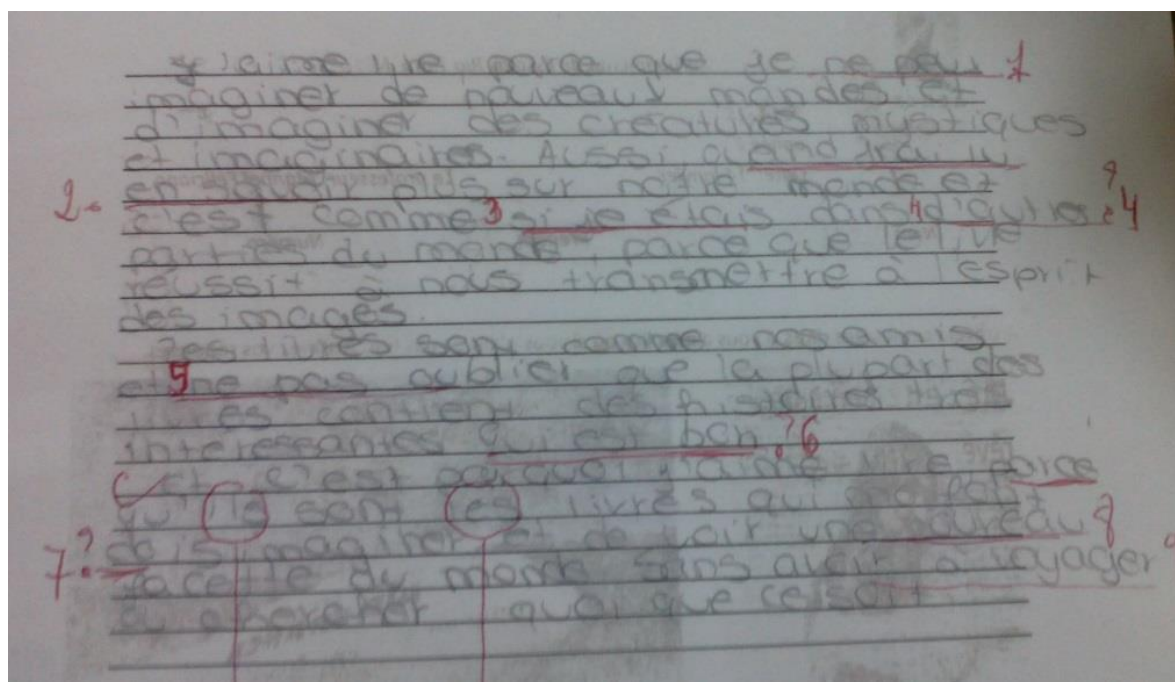 J'aime lire parce que je ne peux 1
imaginer de nouveaux mondes et
d'imaginer des créatures mystiques
et imaginaires. Aussi, quand
2. en savoir plus sur notre monde et
c'est comme 3 si je étais dans 4 d'autres ? 4
parties du monde, parce que le livre
réussit à nous transmettre à l'esprit
des images.
Les livres sont comme nos amis
et 5 ne pas oublier que la plupart des
livres contient des histoires très
interessantes qui est bon. ? 6
Et, c'est pourquoi j'aime lire parce
qu'ils sont les livres qui me font
7 ? imaginer et de voir une nouveau 8
facette du monde sans avoir à voyager
ou chercher quoi que ce soit